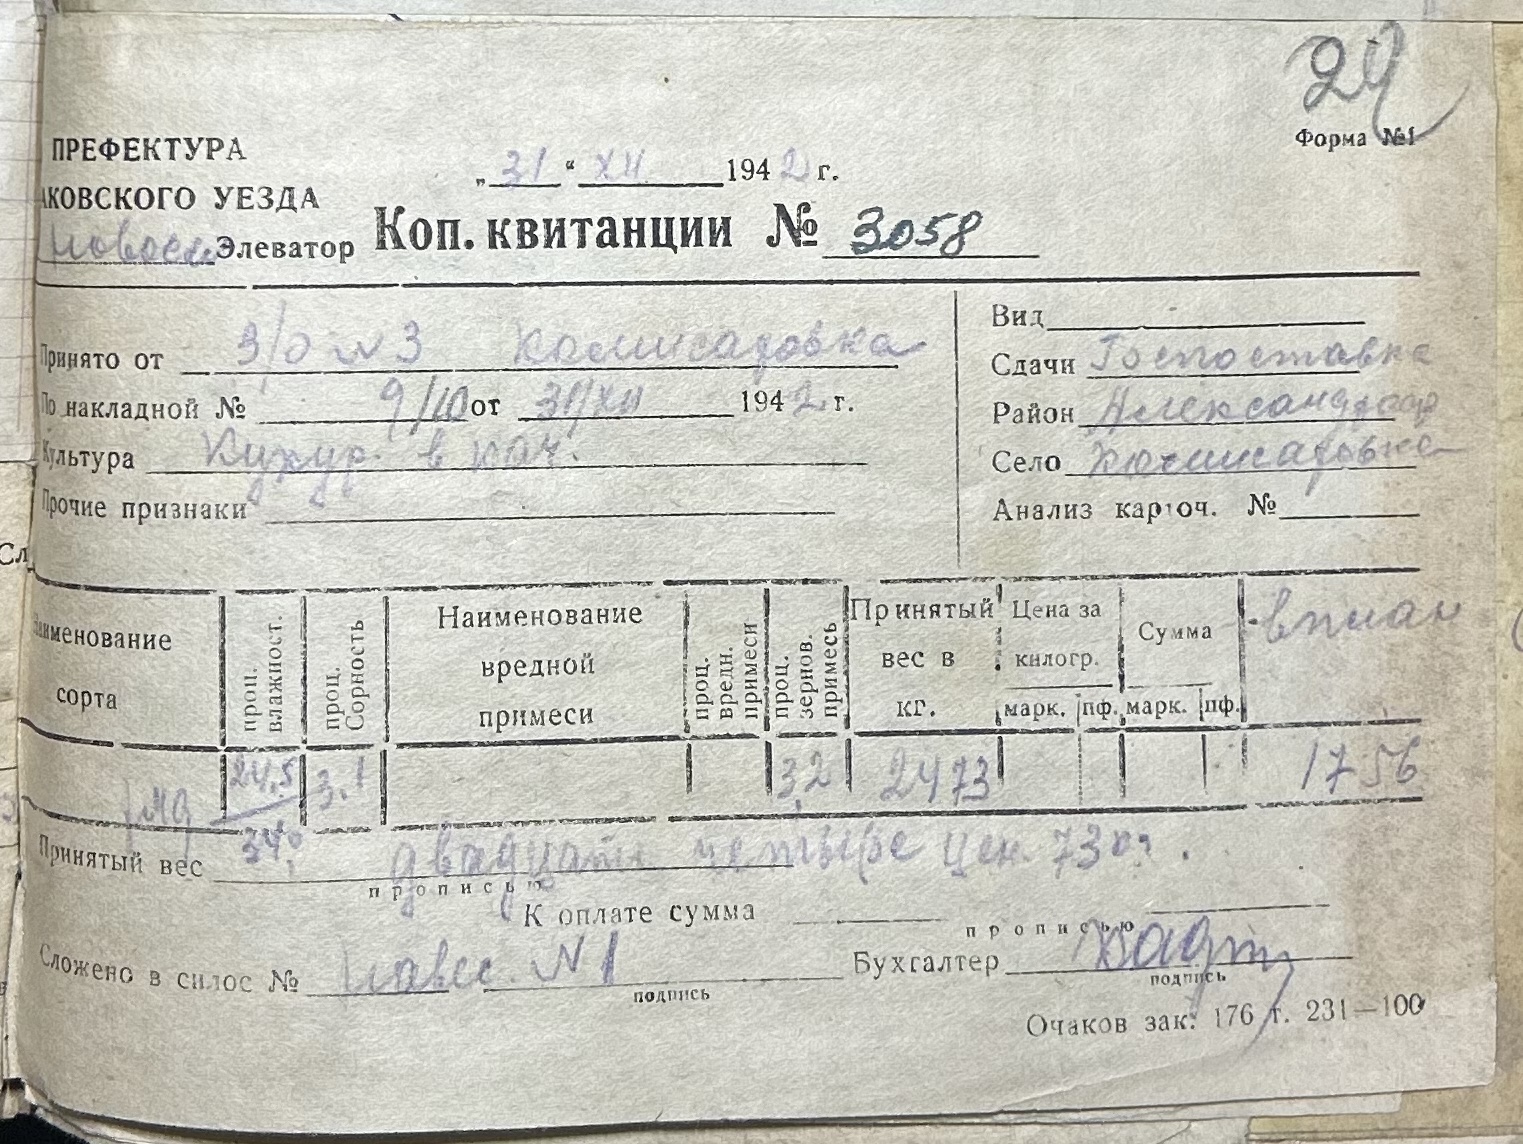 29
Форма №1
ПРЕФЕКТУРА
АКОВСКОГО УЕЗДА
„31“ XII 1942 г.
Элеватор Коп. квитанции № 3058
Принято от З/О №3 Комисаровка
По накладной № 9/10 от 31/XII 1942 г.
Культура Кукур. в кач.
Прочие признаки
Вид
Сдачи Госпоставка
Район Александр
Село Комисаровка
Анализ карточ. №
Сл
Наименование сорта
проц. влажност.
проц. Сорность
Наименование вредной примеси
проц. вредн. примеси
проц. зернов. примесь
Принятый вес в кг.
Цена за килогр.
марк. пф.
Сумма
марк. пф.
24,5 3.1 3,2 2473 1756
34,0
Принятый вес двадцать четыре цен. 73 кг.
прописью
К оплате сумма
прописью
Сложено в силос № Навес N 1
подпись
Бухгалтер
подпись
Очаков зак. 176 т. 231—100